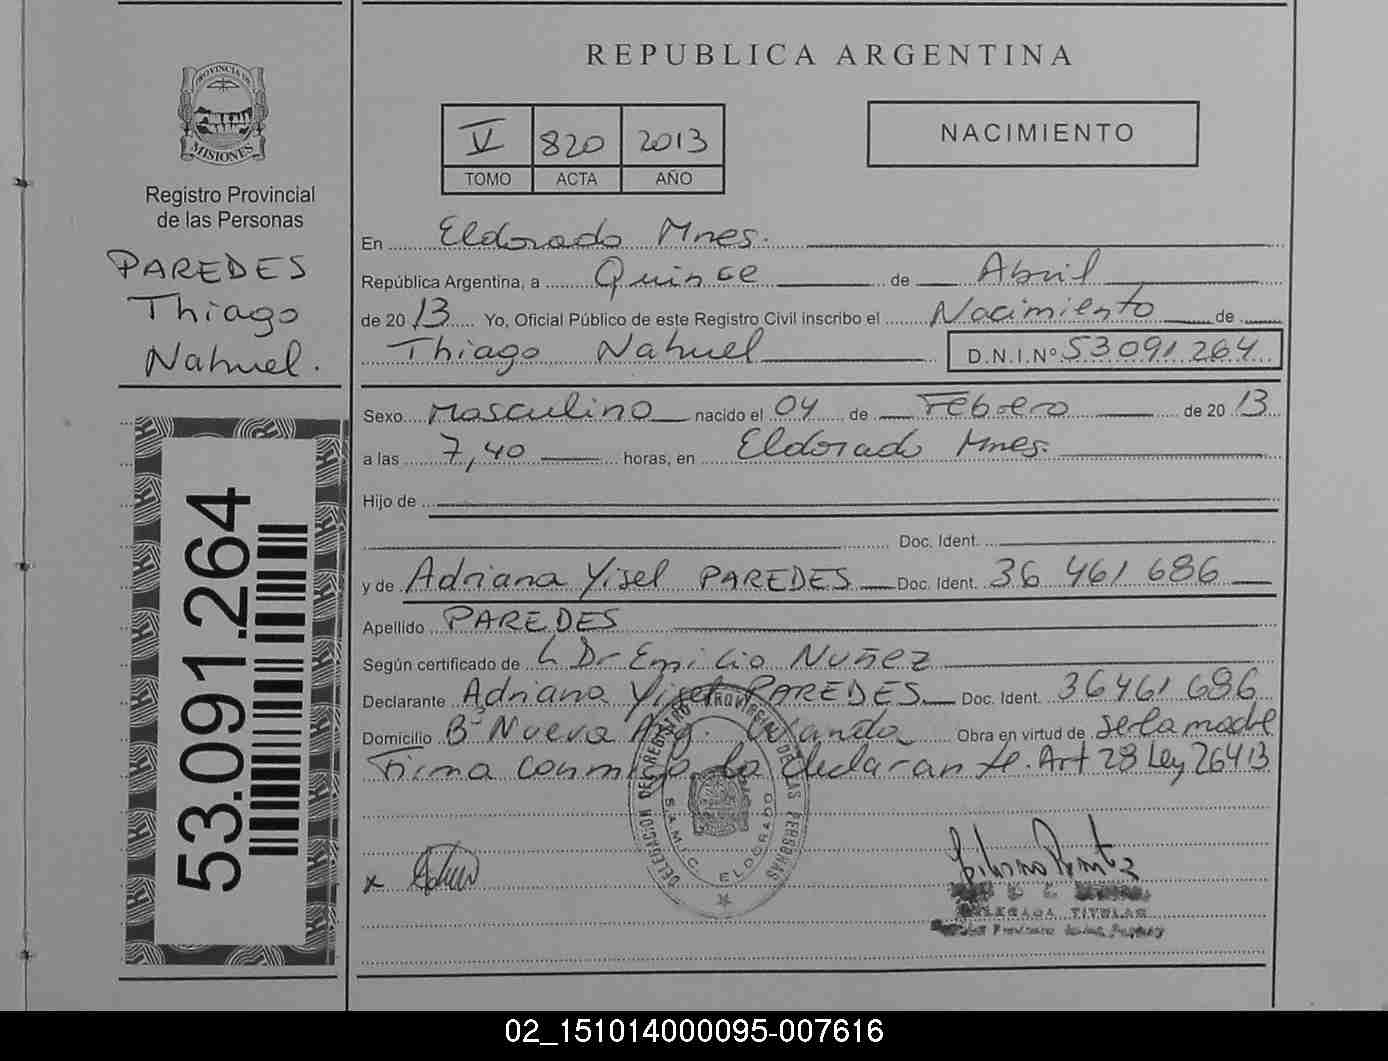 PROVINCIA DE
MISIONES
Registro Provincial
de las Personas
PAREDES
Thiago
Nahuel.
53.091.264
REPUBLICA ARGENTINA
V 820 2013
TOMO ACTA AÑO
NACIMIENTO
En Eldorado Mnes.
República Argentina, a Quince de Abril
de 2013 Yo, Oficial Público de este Registro Civil inscribo el Nacimiento de
Thiago Nahuel D.N.I.Nº 53 091 264
Sexo Masculino nacido el 04 de Febrero de 2013
a las 7,40 horas, en Eldorado Mnes.
Hijo de
Doc. Ident.
y de Adriana Yisel PAREDES Doc. Ident. 36 461 686
Apellido PAREDES
Según certificado de Dr Emilio Nuñez
Declarante Adriana Yisel PAREDES Doc. Ident. 36461 686
Domicilio Bº Nueva Arg. Wanda Obra en virtud de ser la madre
Firma conmigo la declarante. Art 28 Ley 26413
DELEGACION DEL REGISTRO PROVINCIAL DE LAS PERSONAS
S.A.M.I.C. ELDORADO
x
DELEGADA TITULAR
02_151014000095-007616